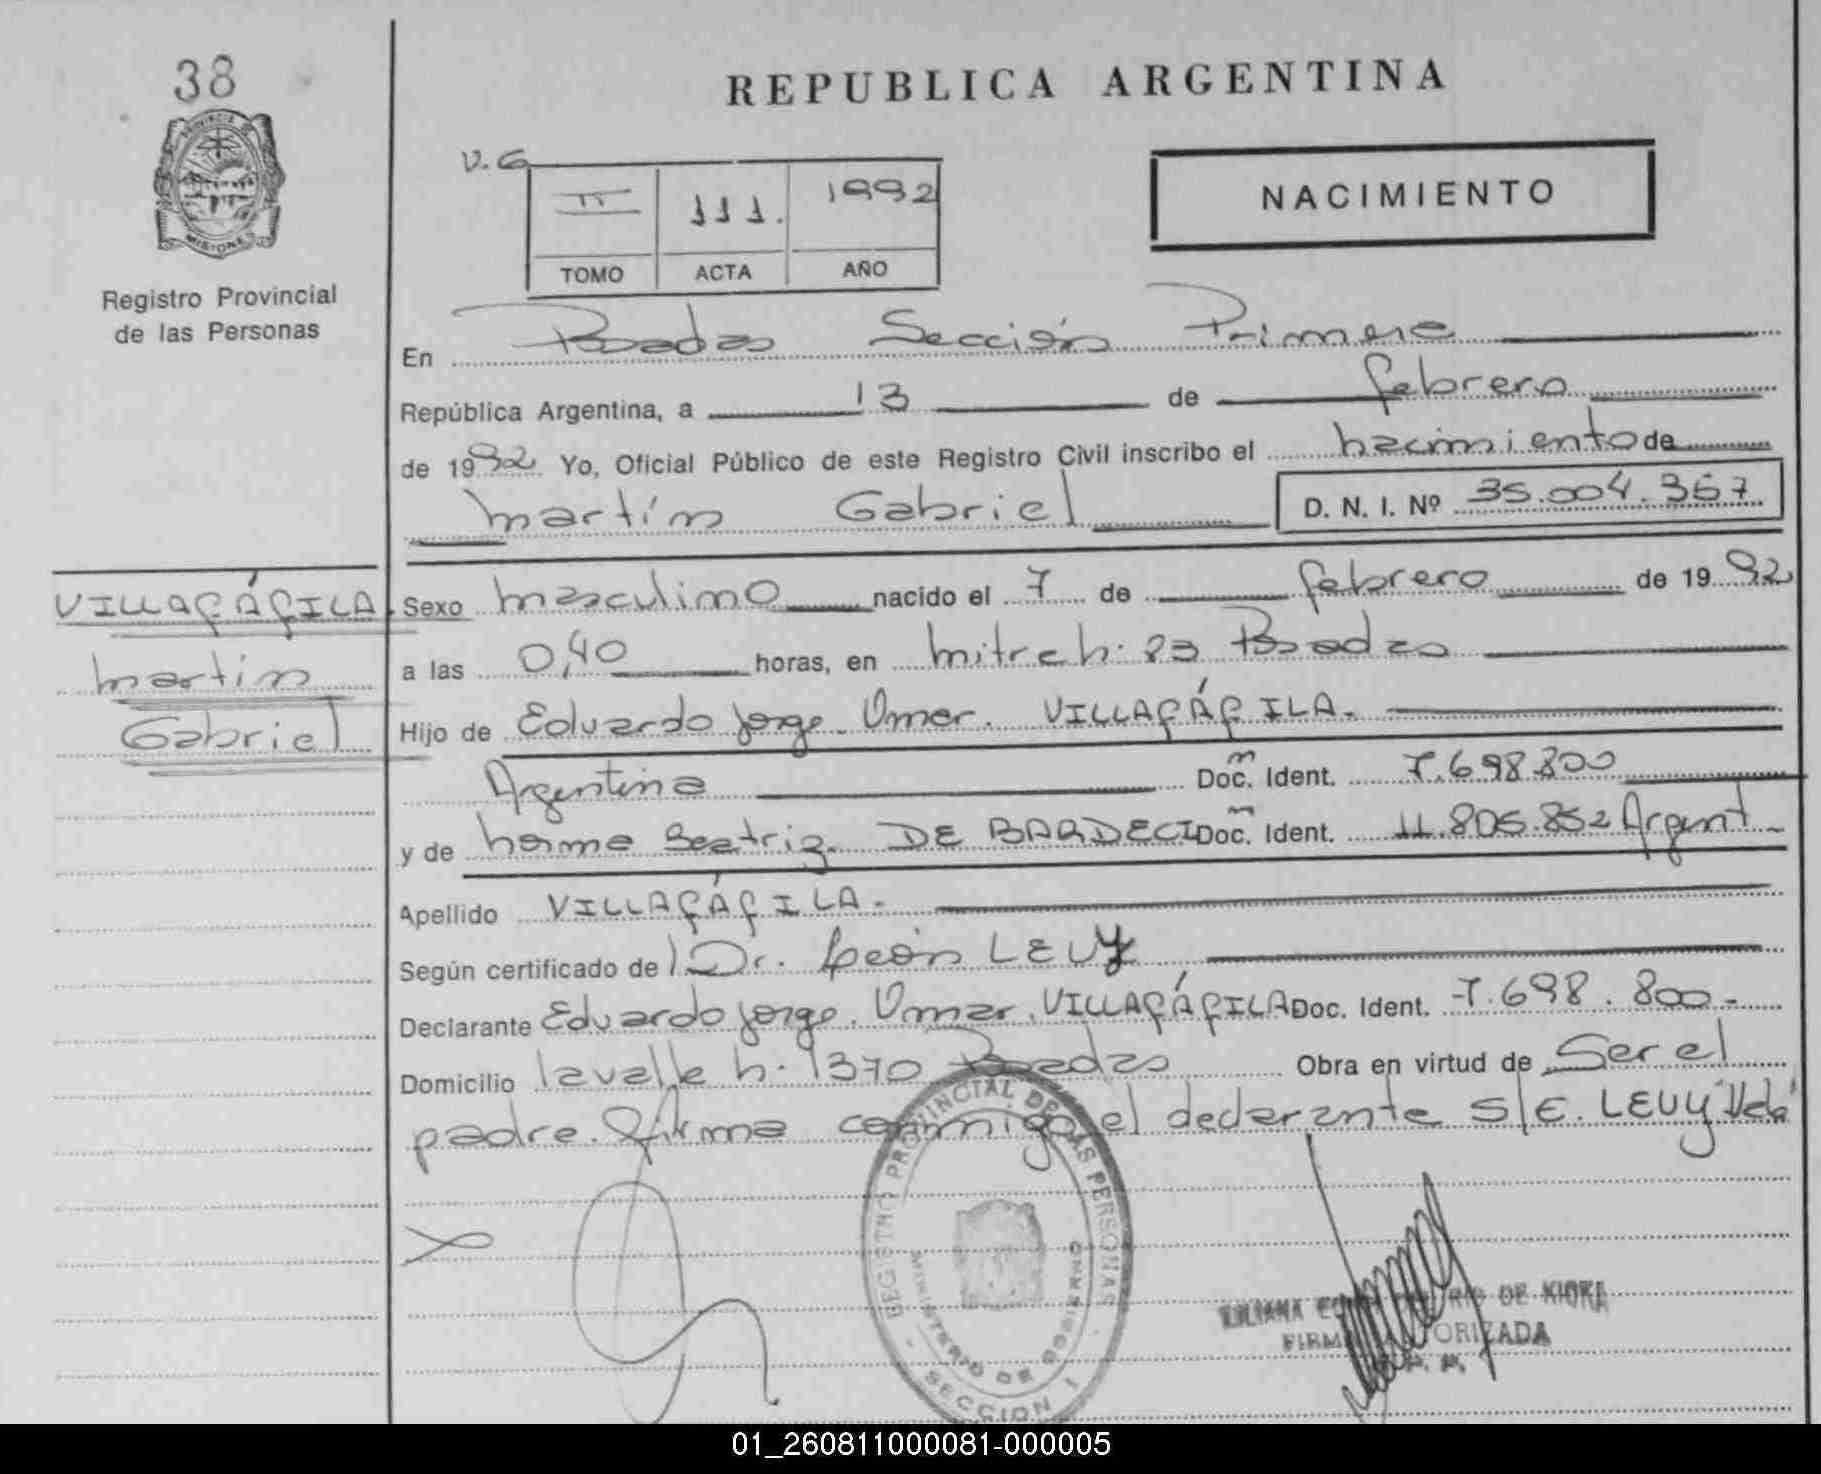 38
PROVINCIA DE
MISIONES
Registro Provincial
de las Personas
REPUBLICA ARGENTINA
V.G
II 111. 1992
TOMO ACTA AÑO
NACIMIENTO
En Posadas Sección Primera
República Argentina, a 13 de febrero
de 1992 Yo, Oficial Público de este Registro Civil inscribo el nacimiento de
Martín Gabriel D. N. I. Nº 35.004.367
VILLAFÁFILA.
Martín
Gabriel
Sexo masculino nacido el 7 de febrero de 1992
a las 0,40 horas, en Mitre n. 23 Posadas
Hijo de Eduardo Jorge Omar. VILLAFÁFILA.
Argentina Doc. Ident. 7.698.800
y de Norma Beatriz DE BARDECI Doc. Ident. 11.805.852 Argent.
Apellido VILLAFÁFILA.
Según certificado de Dr. León LEVY
Declarante Eduardo Jorge. Omar. VILLAFÁFILA Doc. Ident. 7.698.800-
Domicilio Lavalle n. 1370 Posadas Obra en virtud de Ser el
padre. firma conmigo el declarante S/E. LEVY "Vale"
REGISTRO PROVINCIAL DE LAS PERSONAS
MINISTERIO DE GOBIERNO
SECCION 1
LILIANA DE
FIRMA AUTORIZADA
01_260811000081-000005